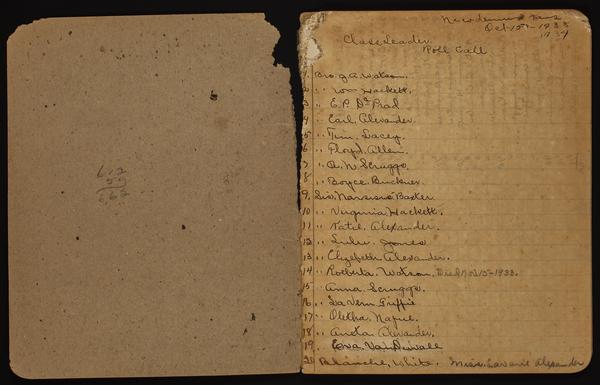 612
50
662
Oct 15th-1933
1934
Class Leader
Roll Call
1. Bro. J. A. Watson.
2 " Wm Hackett.
3 " E. P. De Prad
4 Earl. Alexander.
5 " Tim. Lacey.
6 " Floyd. Allen.
7 " A. W. Scruggs.
8 " Boyce Buckner.
9. Sis. Narcissis Baxter
10 " Virginia Hackett.
11 " Katie. Alexander.
12 " Lulu. Jones
13 " Elizebeth Alexander.
14 " Roeberta Watson. Died Nov 15-1933.
15 Anna. Scruggs.
16 " La Vern Griffie
17 " Oletha. Napue.
18 " Aneta Alexander.
19. Eva. VanDuvall
20 Blanche, White. Miss. Lavanie Alexander